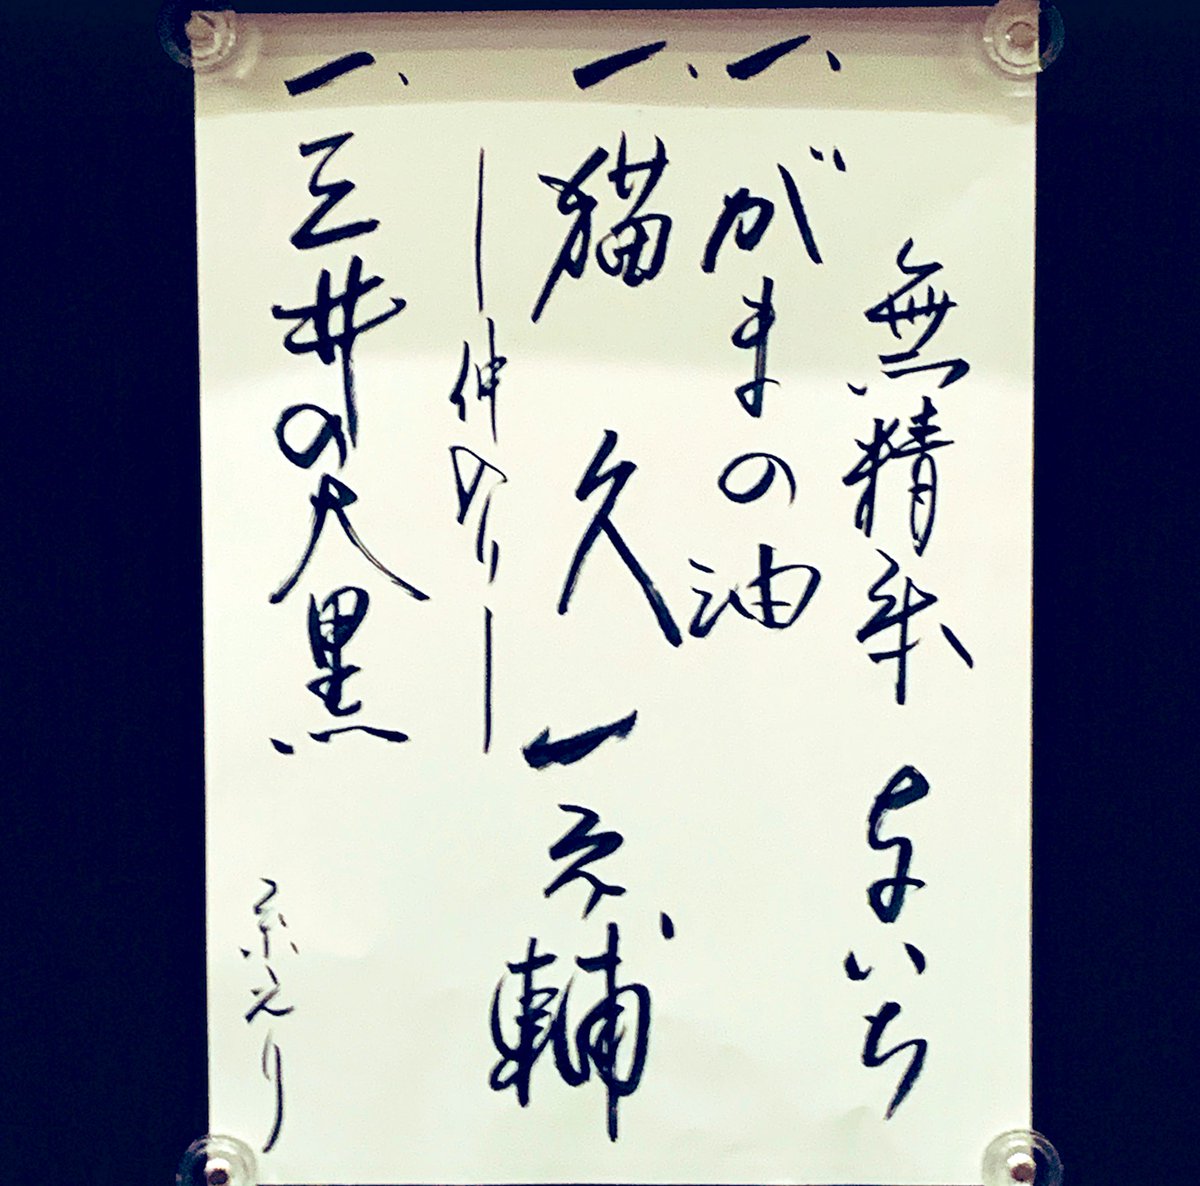 無精床 与いち
一、がまの油
一、猫久 一之輔
仲入り
一、三井の大黒